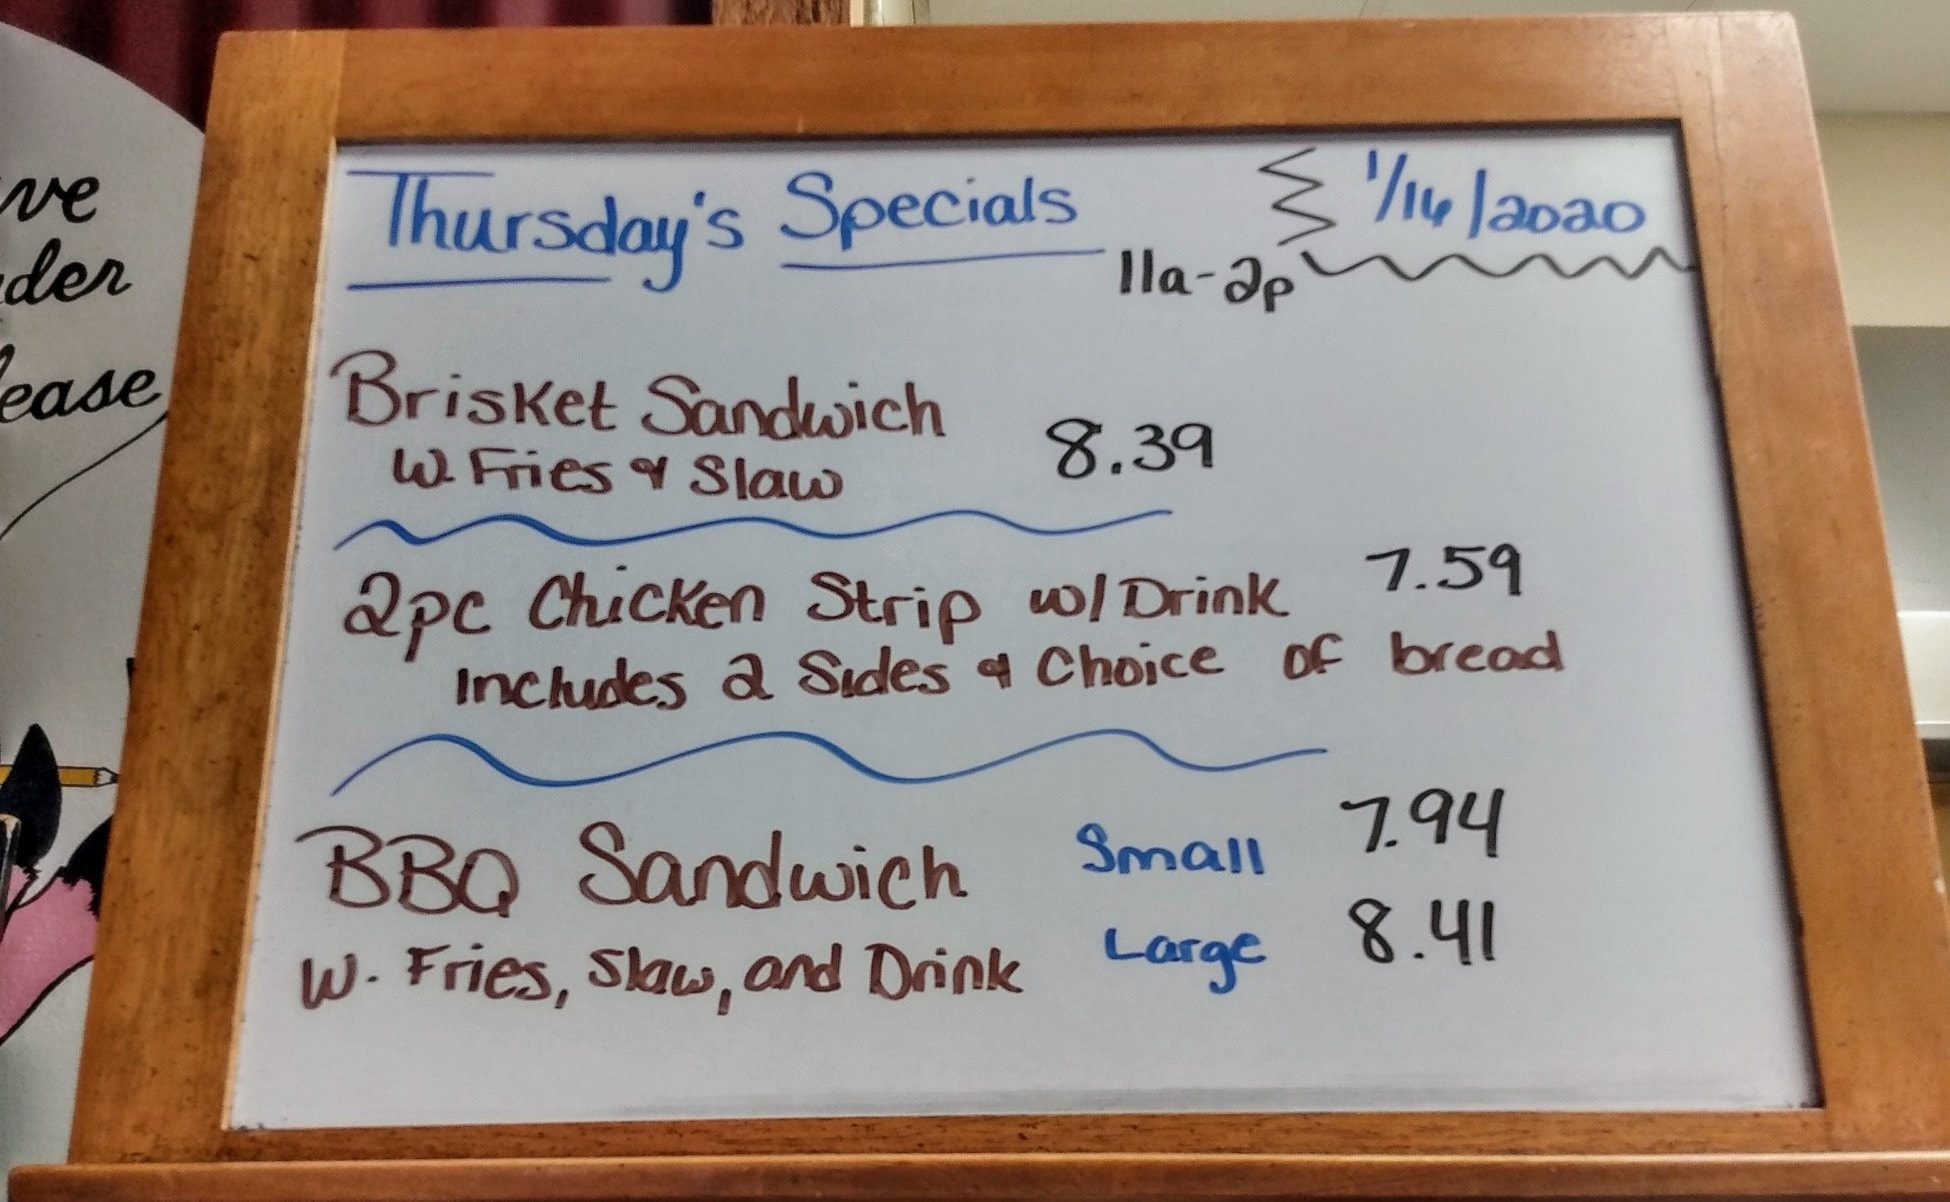 ve
der
lease
Thursday's Specials
1/16/2020
11a-2p
Brisket Sandwich
W. Fries & Slaw
8.39
2pc Chicken Strip w/ Drink 7.59
Includes 2 Sides & Choice of bread
BBQ Sandwich Small 7.94
W. Fries, Slaw, and Drink Large 8.41